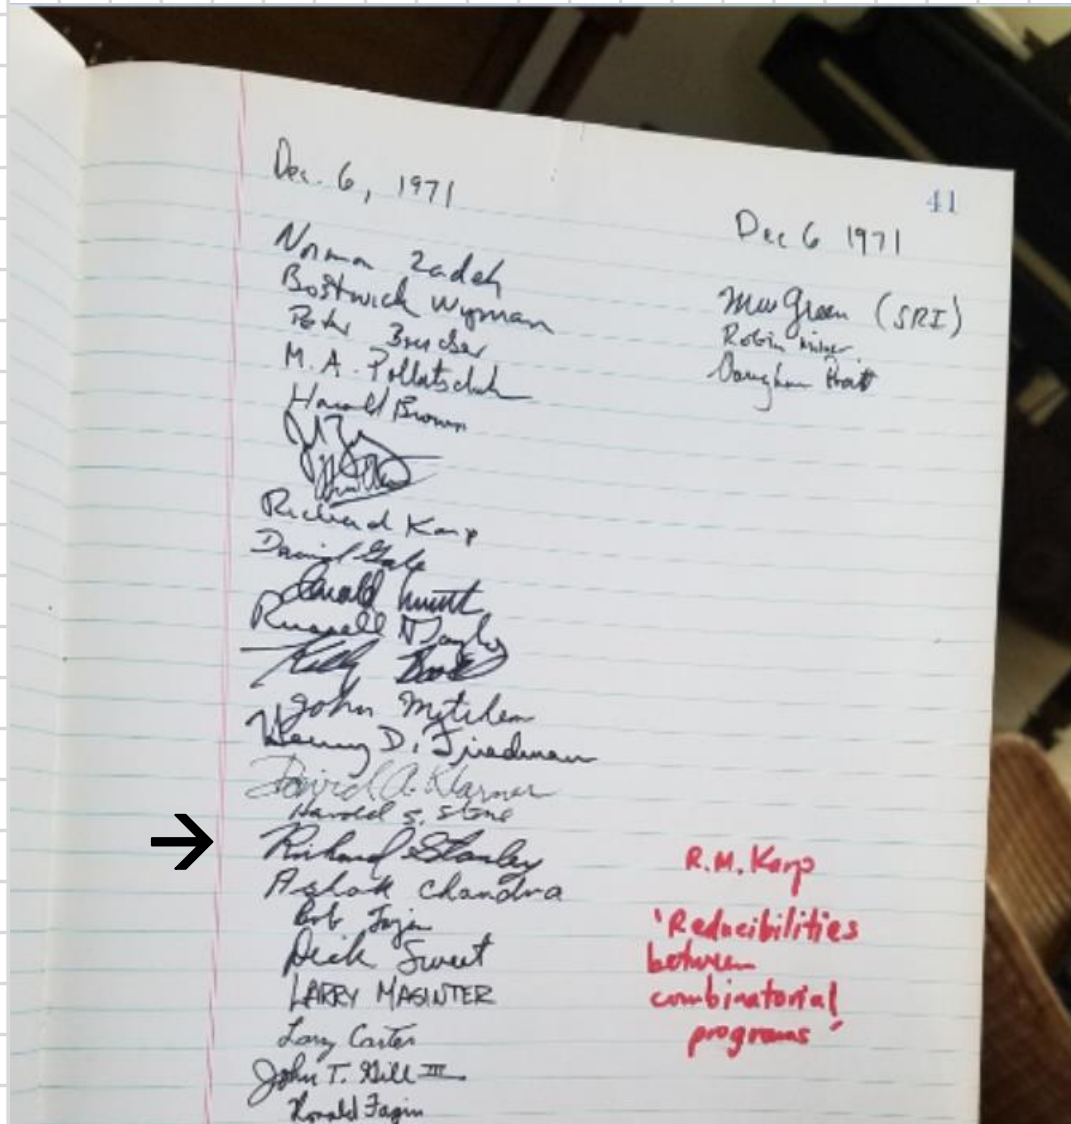 Dec. 6, 1971
Norman Zadeh
Bostwick Wyman
Peter
M. A. Pollatschek
Harold Brown
Richard Karp
David Gale
Donald Knuth
Russell N Taylor
John Mitchem
D. Friedman
David A. Klarner
Harold S. Stone
Richard Stanley
Ashok Chandra
Bob
Dick Sweet
LARRY MASINTER
Larry Carter
John T. Gill III
Ronald Fagin
41
Dec 6 1971
Green (SRI)
Robin Milner
Vaughan Pratt
R.M. Karp
'Reducibilities
between
combinatorial
programs'